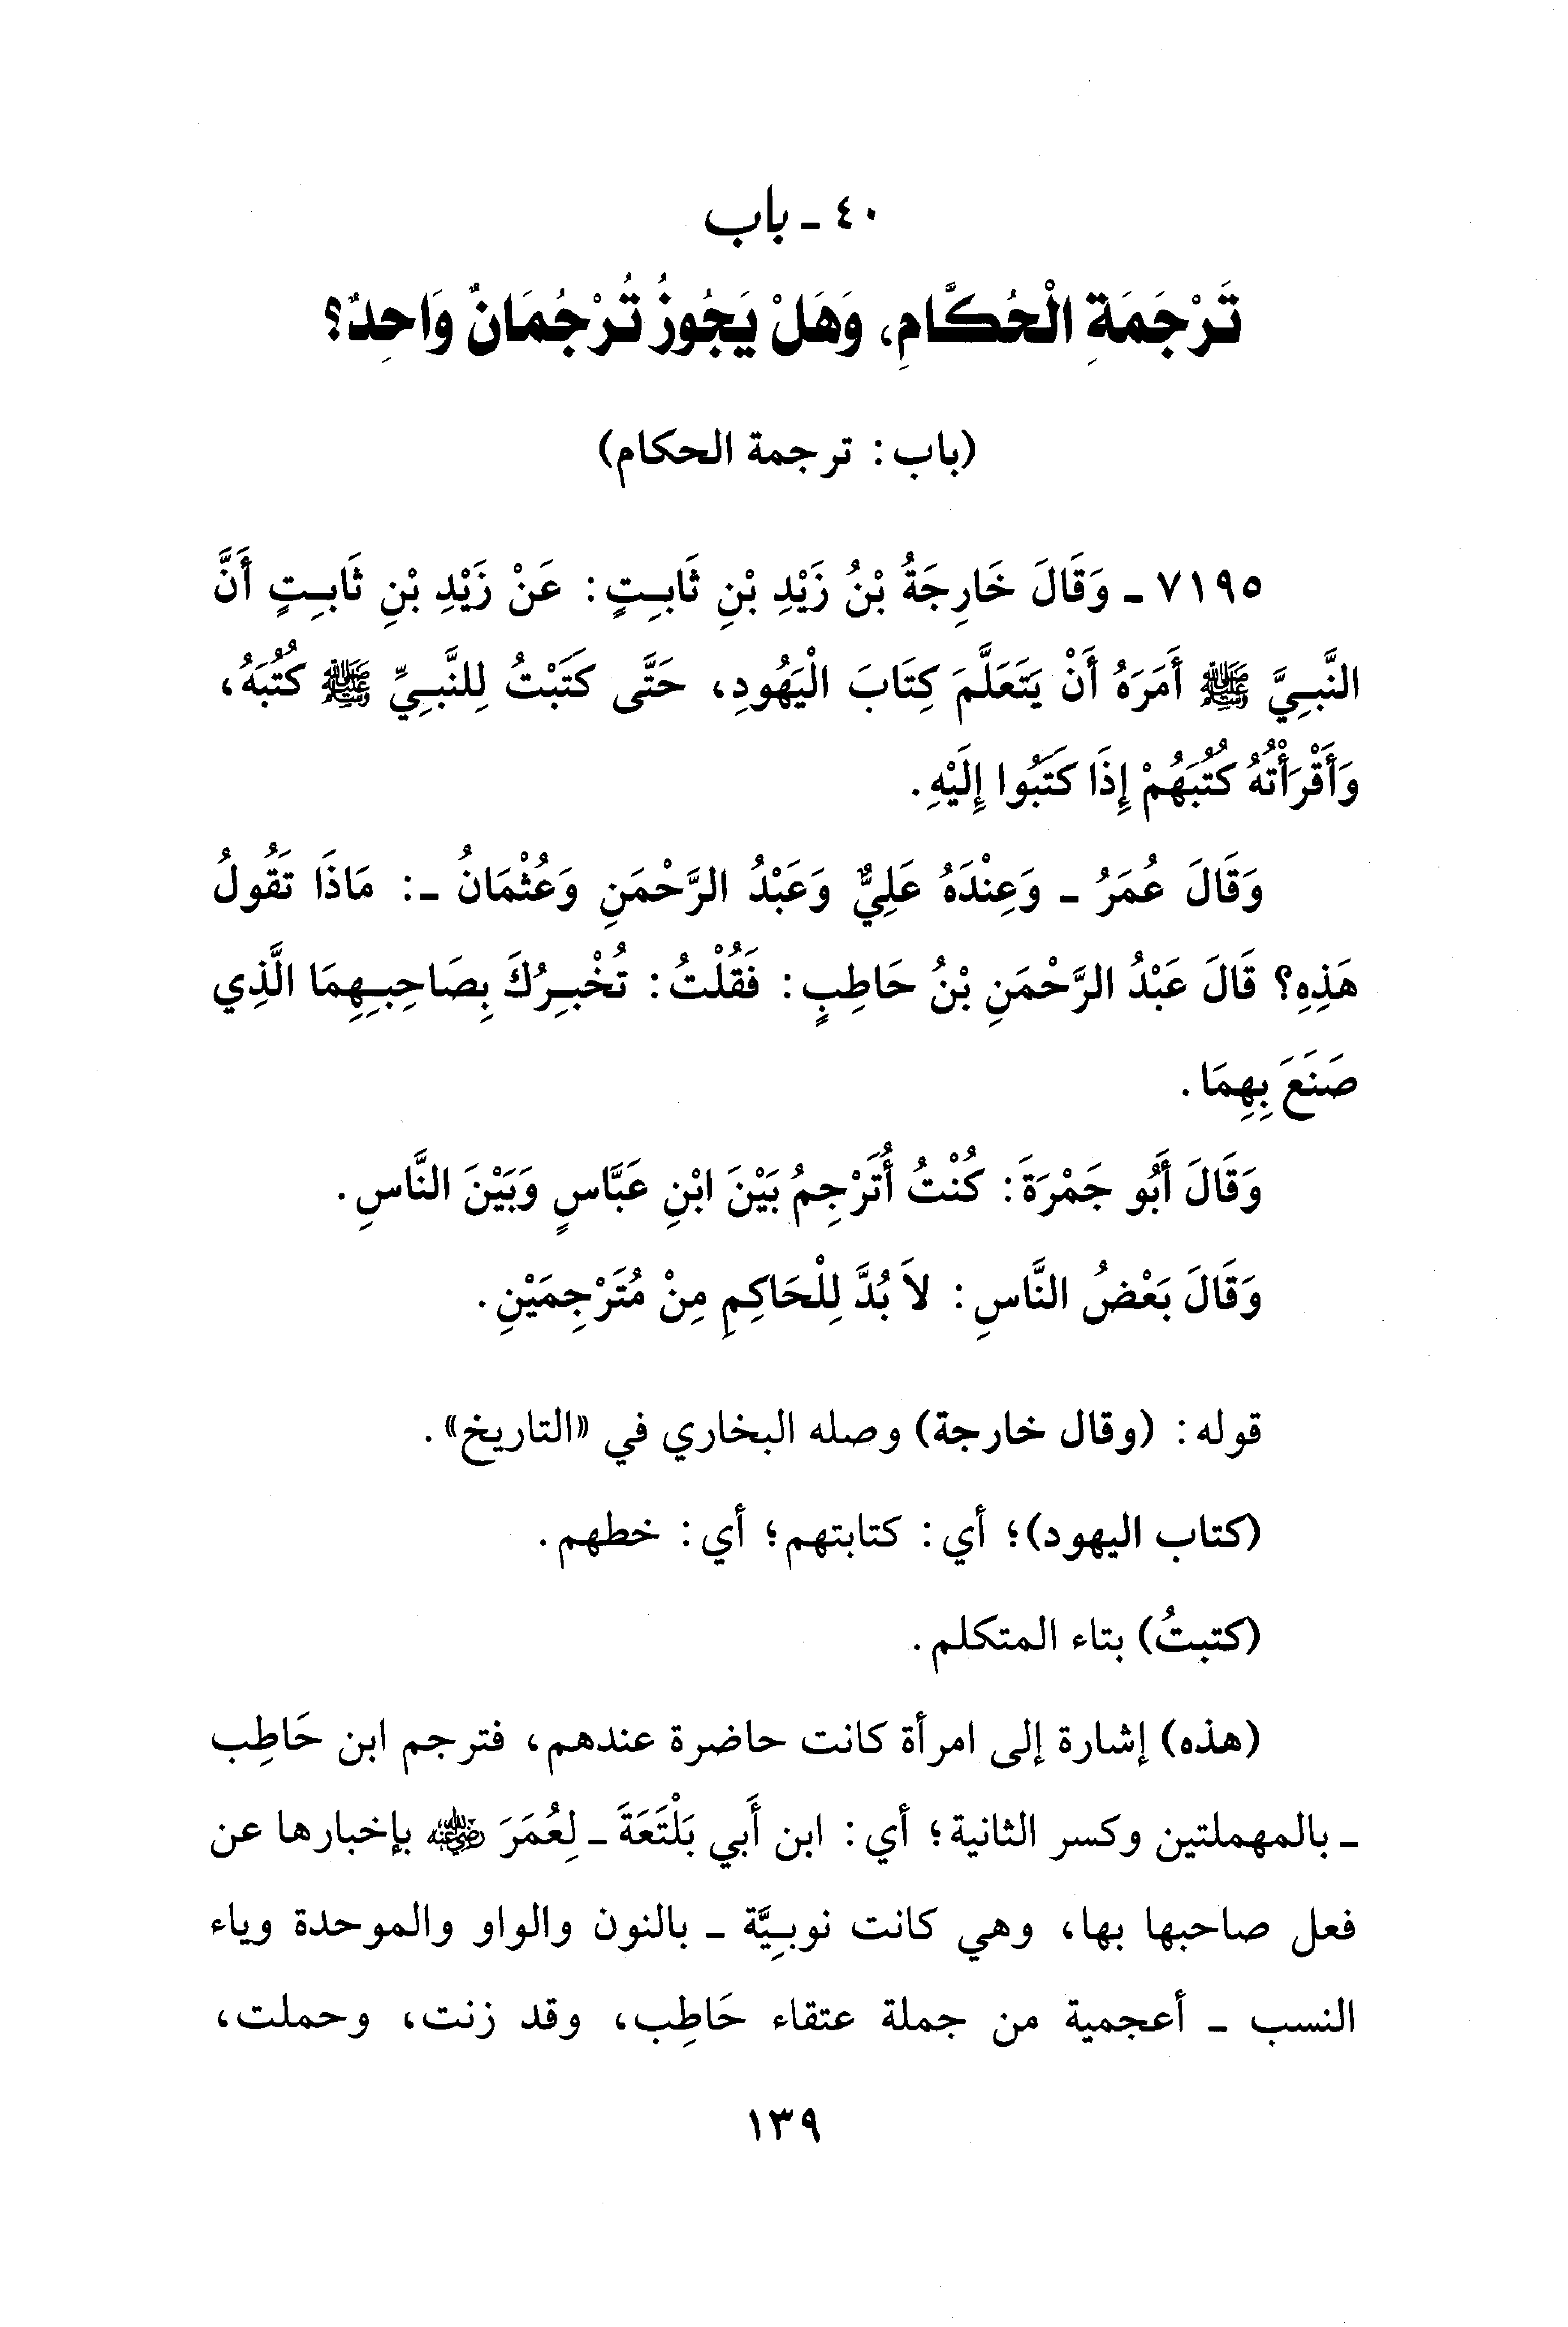 ٤٠ - باب
تَرْجَمَةِ الْحُكَّامِ، وَهَلْ يَجُوزُ تُرْجُمَانٌ وَاحِدٌ؟
(باب: ترجمة الحكام)
٧١٩٥ - وَقَالَ خَارِجَةُ بْنُ زَيْدِ بْنِ ثَابِتٍ: عَنْ زَيْدِ بْنِ ثَابِتٍ أَنَّ
النَّبِيَّ ﷺ أَمَرَهُ أَنْ يَتَعَلَّمَ كِتَابَ الْيَهُودِ، حَتَّى كَتَبْتُ لِلنَّبِيِّ ﷺ كُتُبَهُ،
وَأَقْرَأْتُهُ كُتُبَهُمْ إِذَا كَتَبُوا إِلَيْهِ.
وَقَالَ عُمَرُ - وَعِنْدَهُ عَلِيٌّ وَعَبْدُ الرَّحْمَنِ وَعُثْمَانُ -: مَاذَا تَقُولُ
هَذِهِ؟ قَالَ عَبْدُ الرَّحْمَنِ بْنُ حَاطِبٍ: فَقُلْتُ: تُخْبِرُكَ بِصَاحِبِهِمَا الَّذِي
صَنَعَ بِهِمَا.
وَقَالَ أَبُو جَمْرَةَ: كُنْتُ أُتَرْجِمُ بَيْنَ ابْنِ عَبَّاسٍ وَبَيْنَ النَّاسِ.
وَقَالَ بَعْضُ النَّاسِ: لاَ بُدَّ لِلْحَاكِمِ مِنْ مُتَرْجِمَيْنِ.
قوله: (وقال خارجة) وصله البخاري في «التاريخ».
(كتاب اليهود)؛ أي: كتابتهم؛ أي: خطهم.
(كتبتُ) بتاء المتكلم.
(هذه) إشارة إلى امرأة كانت حاضرة عندهم، فترجم ابن حَاطِب
- بالمهملتين وكسر الثانية؛ أي: ابن أَبي بَلْتَعَةَ - لِعُمَرَ ﵁ بإخبارها عن
فعل صاحبها بها، وهي كانت نوبِيَّة - بالنون والواو والموحدة وياء
النسب - أعجمية من جملة عتقاء حَاطِب، وقد زنت، وحملت،
١٣٩